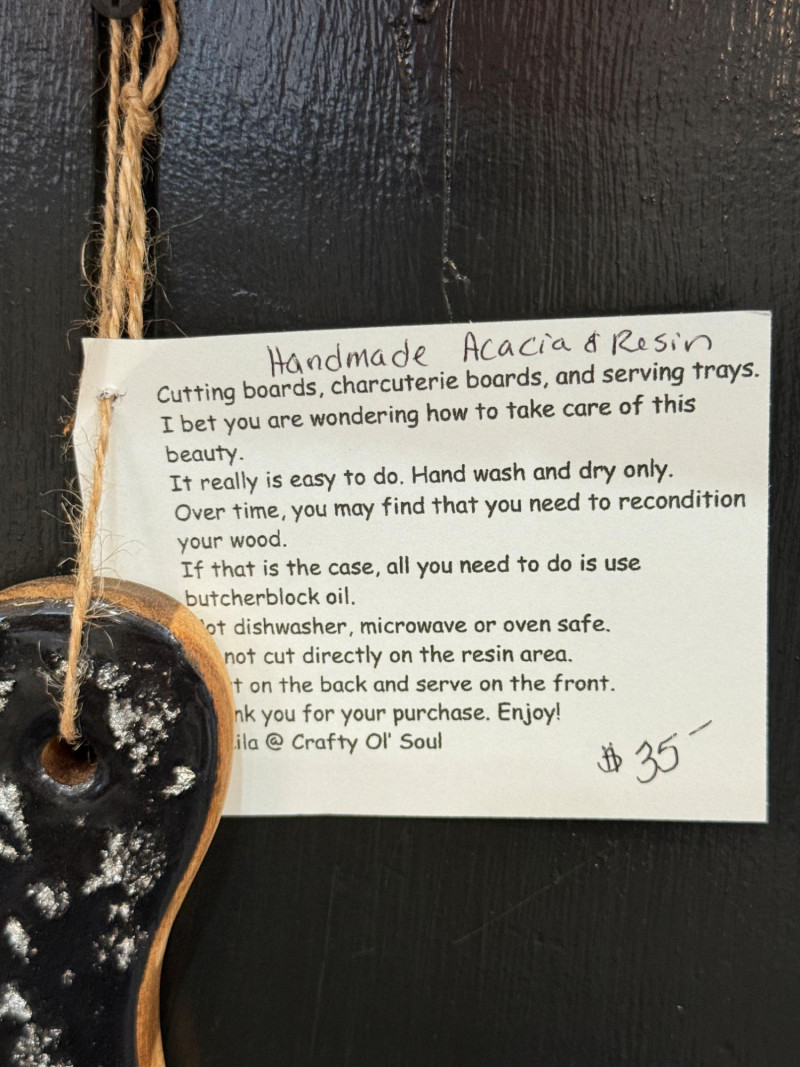 Handmade Acacia & Resin
Cutting boards, charcuterie boards, and serving trays.
I bet you are wondering how to take care of this
beauty.
It really is easy to do. Hand wash and dry only.
Over time, you may find that you need to recondition
your wood.
If that is the case, all you need to do is use
butcherblock oil.
dishwasher, microwave or oven safe.
not cut directly on the resin area.
on the back and serve on the front.
you for your purchase. Enjoy!
@ Crafty Ol' Soul
$35-